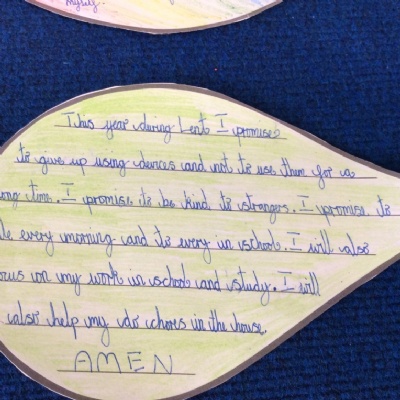 myself.
This year during Lent I promise
to give up using devices and not to use them for a
ong time. I promise to be kind to strangers. I promise to
le every morning and to every in school. I will also
ocus on my work in school and study. I will
also help my do chores in the house.
AMEN